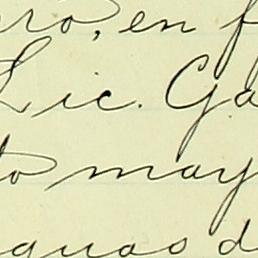 ro, en f
Lic. Ga
to may
guas d